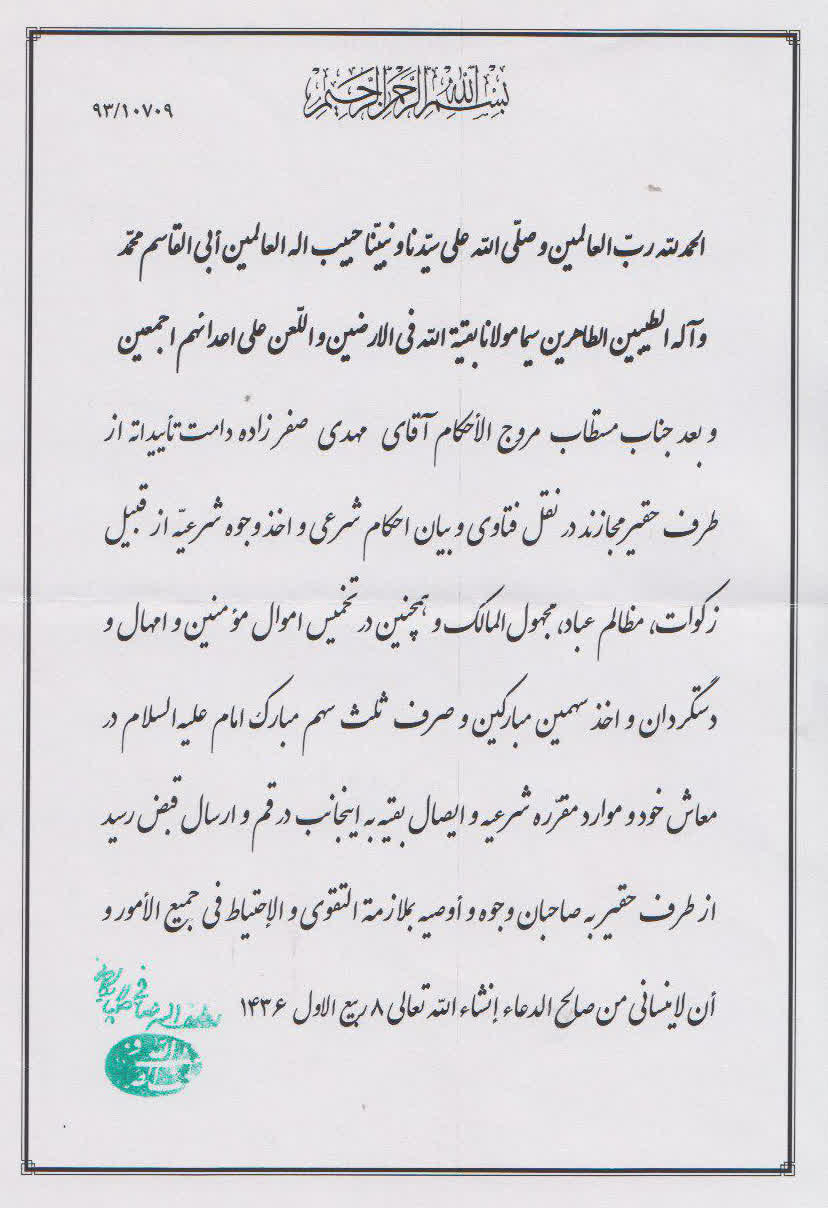 بسم الله الرحمن الرحیم
۹۳/۱۰۷۰۹
الحمد لله ربّ العالمین و صلّی الله علی سیّدنا و نبیّنا حبیب اله العالمین أبی القاسم محمّد
و آله الطیبین الطاهرین سیما مولانا بقیة الله فی الارضین و اللّعن علی اعدائهم اجمعین
و بعد جناب مستطاب مروج الأحکام آقای مهدی صفرزاده دامت تأییداته از
طرف حقیر مجازند در نقل فتاوی و بیان احکام شرعی و اخذ وجوه شرعیّه از قبیل
زکوات، مظالم عباد، مجهول المالک و همچنین در تخمیس اموال مؤمنین و امهال و
دستگردان و اخذ سهمین مبارکین و صرف ثلث سهم مبارک امام علیه السلام در
معاش خود و موارد مقرّره شرعیه و ایصال بقیه به اینجانب در قم و ارسال قبض رسید
از طرف حقیر به صاحبان وجوه و أوصیه بملازمة التقوی و الإحتیاط فی جمیع الأمور و
أن لاینسانی من صالح الدعاء إنشاء الله تعالی ۸ ربیع الاول ۱۴۳۶
لطف الله صافی گلپایگانی